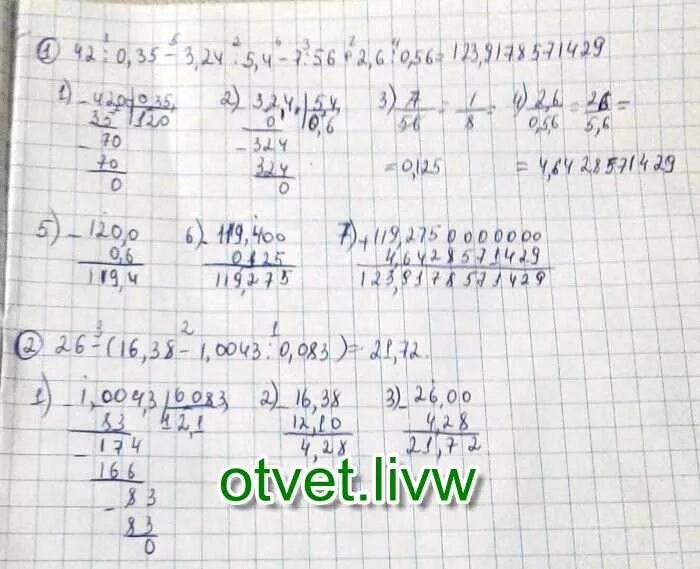 1 42 : 0,35 - 3,24 : 5,4 - 7 : 56 + 2,6 : 0,56 = 123,9178571429
1) 420 | 0,35, 2) 3,2,4, | 5,4, 3) 7/56 = 1/8 = 4) 2,6/0,56 = 26/5,6 =
35 120 0, 0,6 = 0,125 = 4,6428571429
- 70 - 324
70 324
0 0
5) - 120,0 6) - 119,400 7) + 119,2750000000
0,6 0,125 4,6428571429
119,4 119,275 123,9178571429
2 26 - (16,38 - 1,0043 : 0,083) = 21,72.
1) - 1,004,3 | 0,083, 2) - 16,38 3) - 26,00
83 12,1 12,10 4,28
- 174 4,28 21,72
166
- 83
83
0
otvet.livw